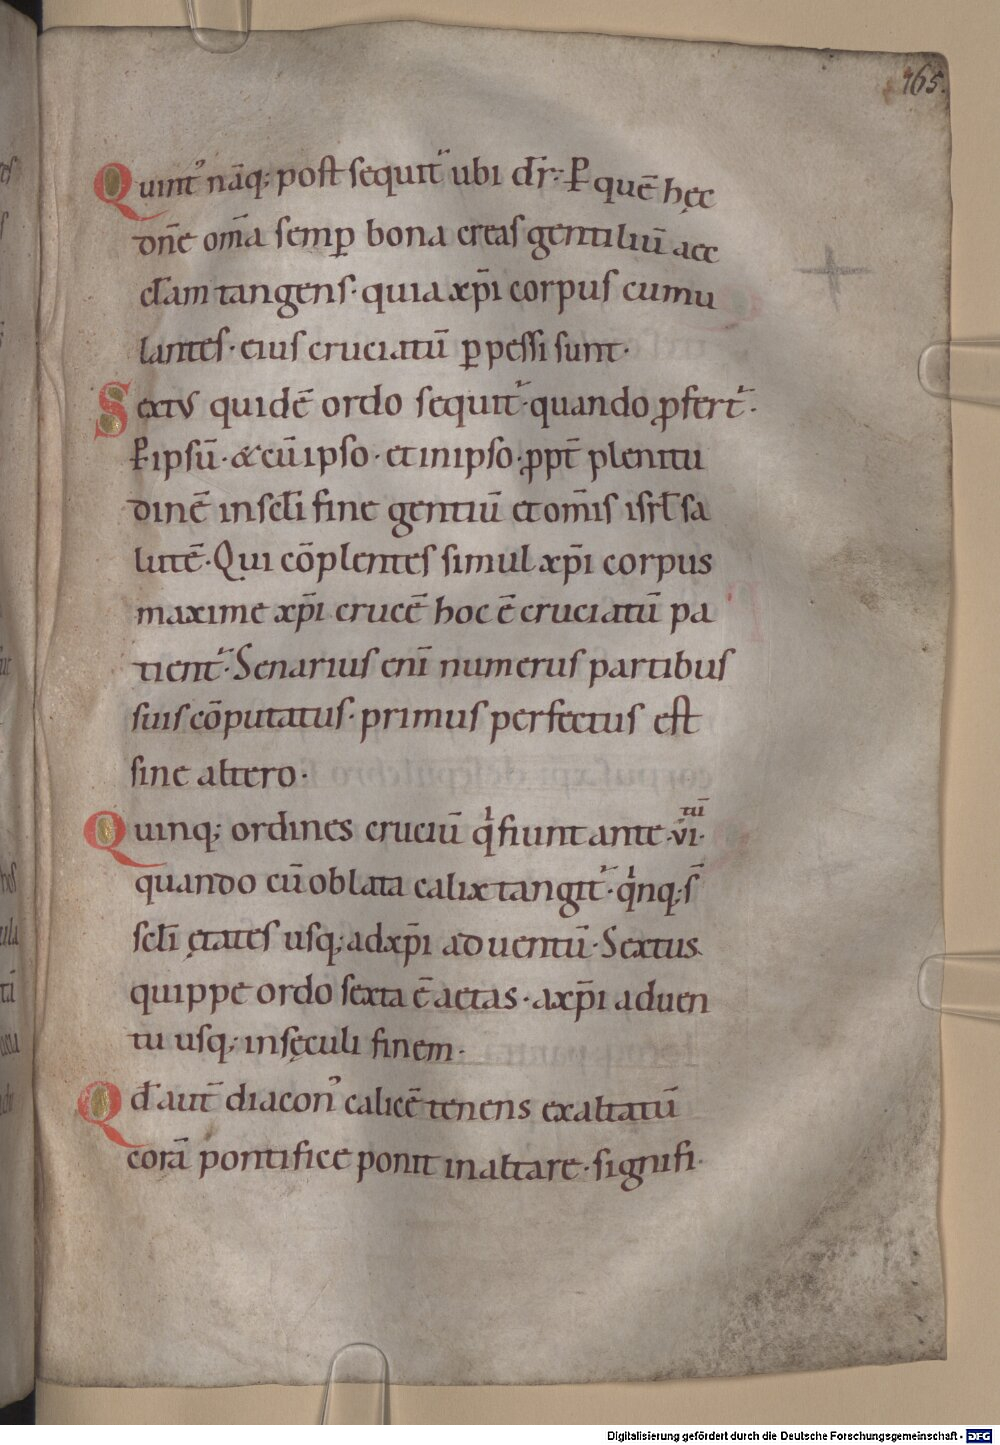 165.
Quint᾽ nāq; post sequit᷑ ubi dr̄. P̲ quē hęc
dn̄e om̄a semp̲ bona creas gentiliū aec
cl̄am tangens. quia xp̄i corpus cumu
lantes. eius cruciatū p̲pessi sunt.
Sextus quidē ordo sequit᷑. quando ꝓfert᷑.
P̲ ipsū. & cū ipso. et in ipso. ꝓpt̄ plenitu
dinē in sc̄li fine gentiū et om̄is isrl̄ sa
lutē. Qui cōplentes simul xp̄i corpus
maxime xp̄i crucē hoc ē cruciatū pa
tient᷑. Senarius enī numerus partibus
suis cōputatus. primus perfectus est
sine altero.
Quinq; ordines cruciū qͥ fiunt ante .vi.tū
quando cū oblata calix tangit᷑. qͥnq; s̄
scl̄i ętates usq; ad xp̄i aduentū. Sextus
quippe ordo sexta ē aetas. a xp̄i aduen
tu usq; in sęculi finem.
Qd̄ aut̄ diacon᾽ calicē tenens exaltatū
corā pontifice ponit in altare. signifi.
Digitalisierung gefördert durch die Deutsche Forschungsgemeinschaft - DFG